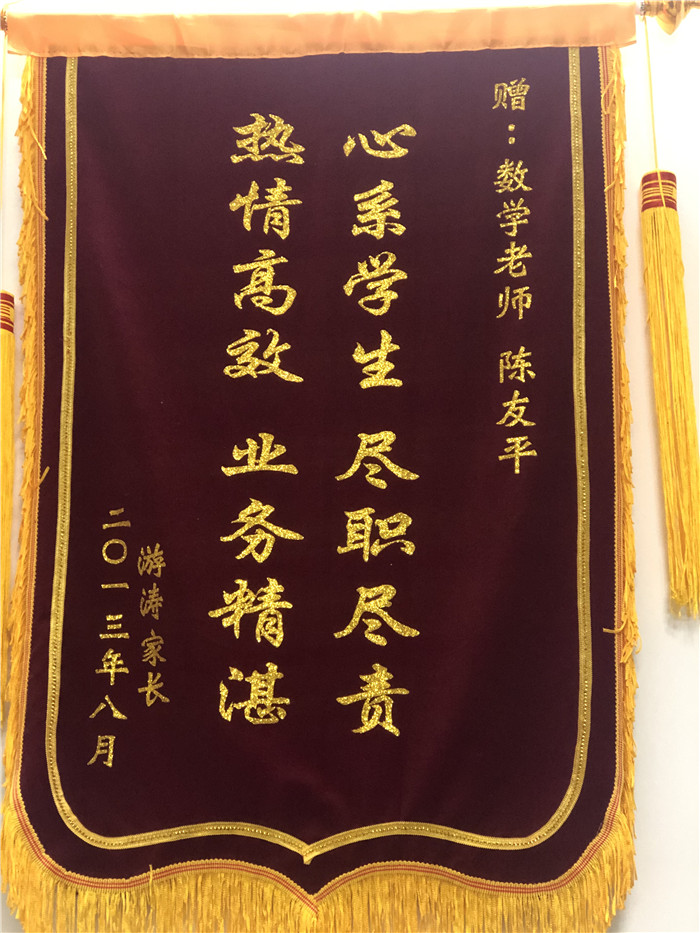 赠：数学老师 陈友平
心系学生 尽职尽责
热情高效 业务精湛
游涛家长
二〇一三年八月